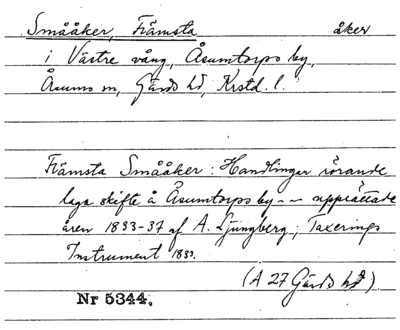 Smååker, Främsta åker
i Västre vång, Åsumtorps by,
Åsums sn, Gärds hd, Krstd. l.
Främsta Smååker: Handlingar rörande
laga skifte å Åsumtorps by -- upprättade
åren 1833-37 af A. Ljungberg; Taxerings
Instrument 1833.
(A 27 Gärds hd)
Nr 5344.